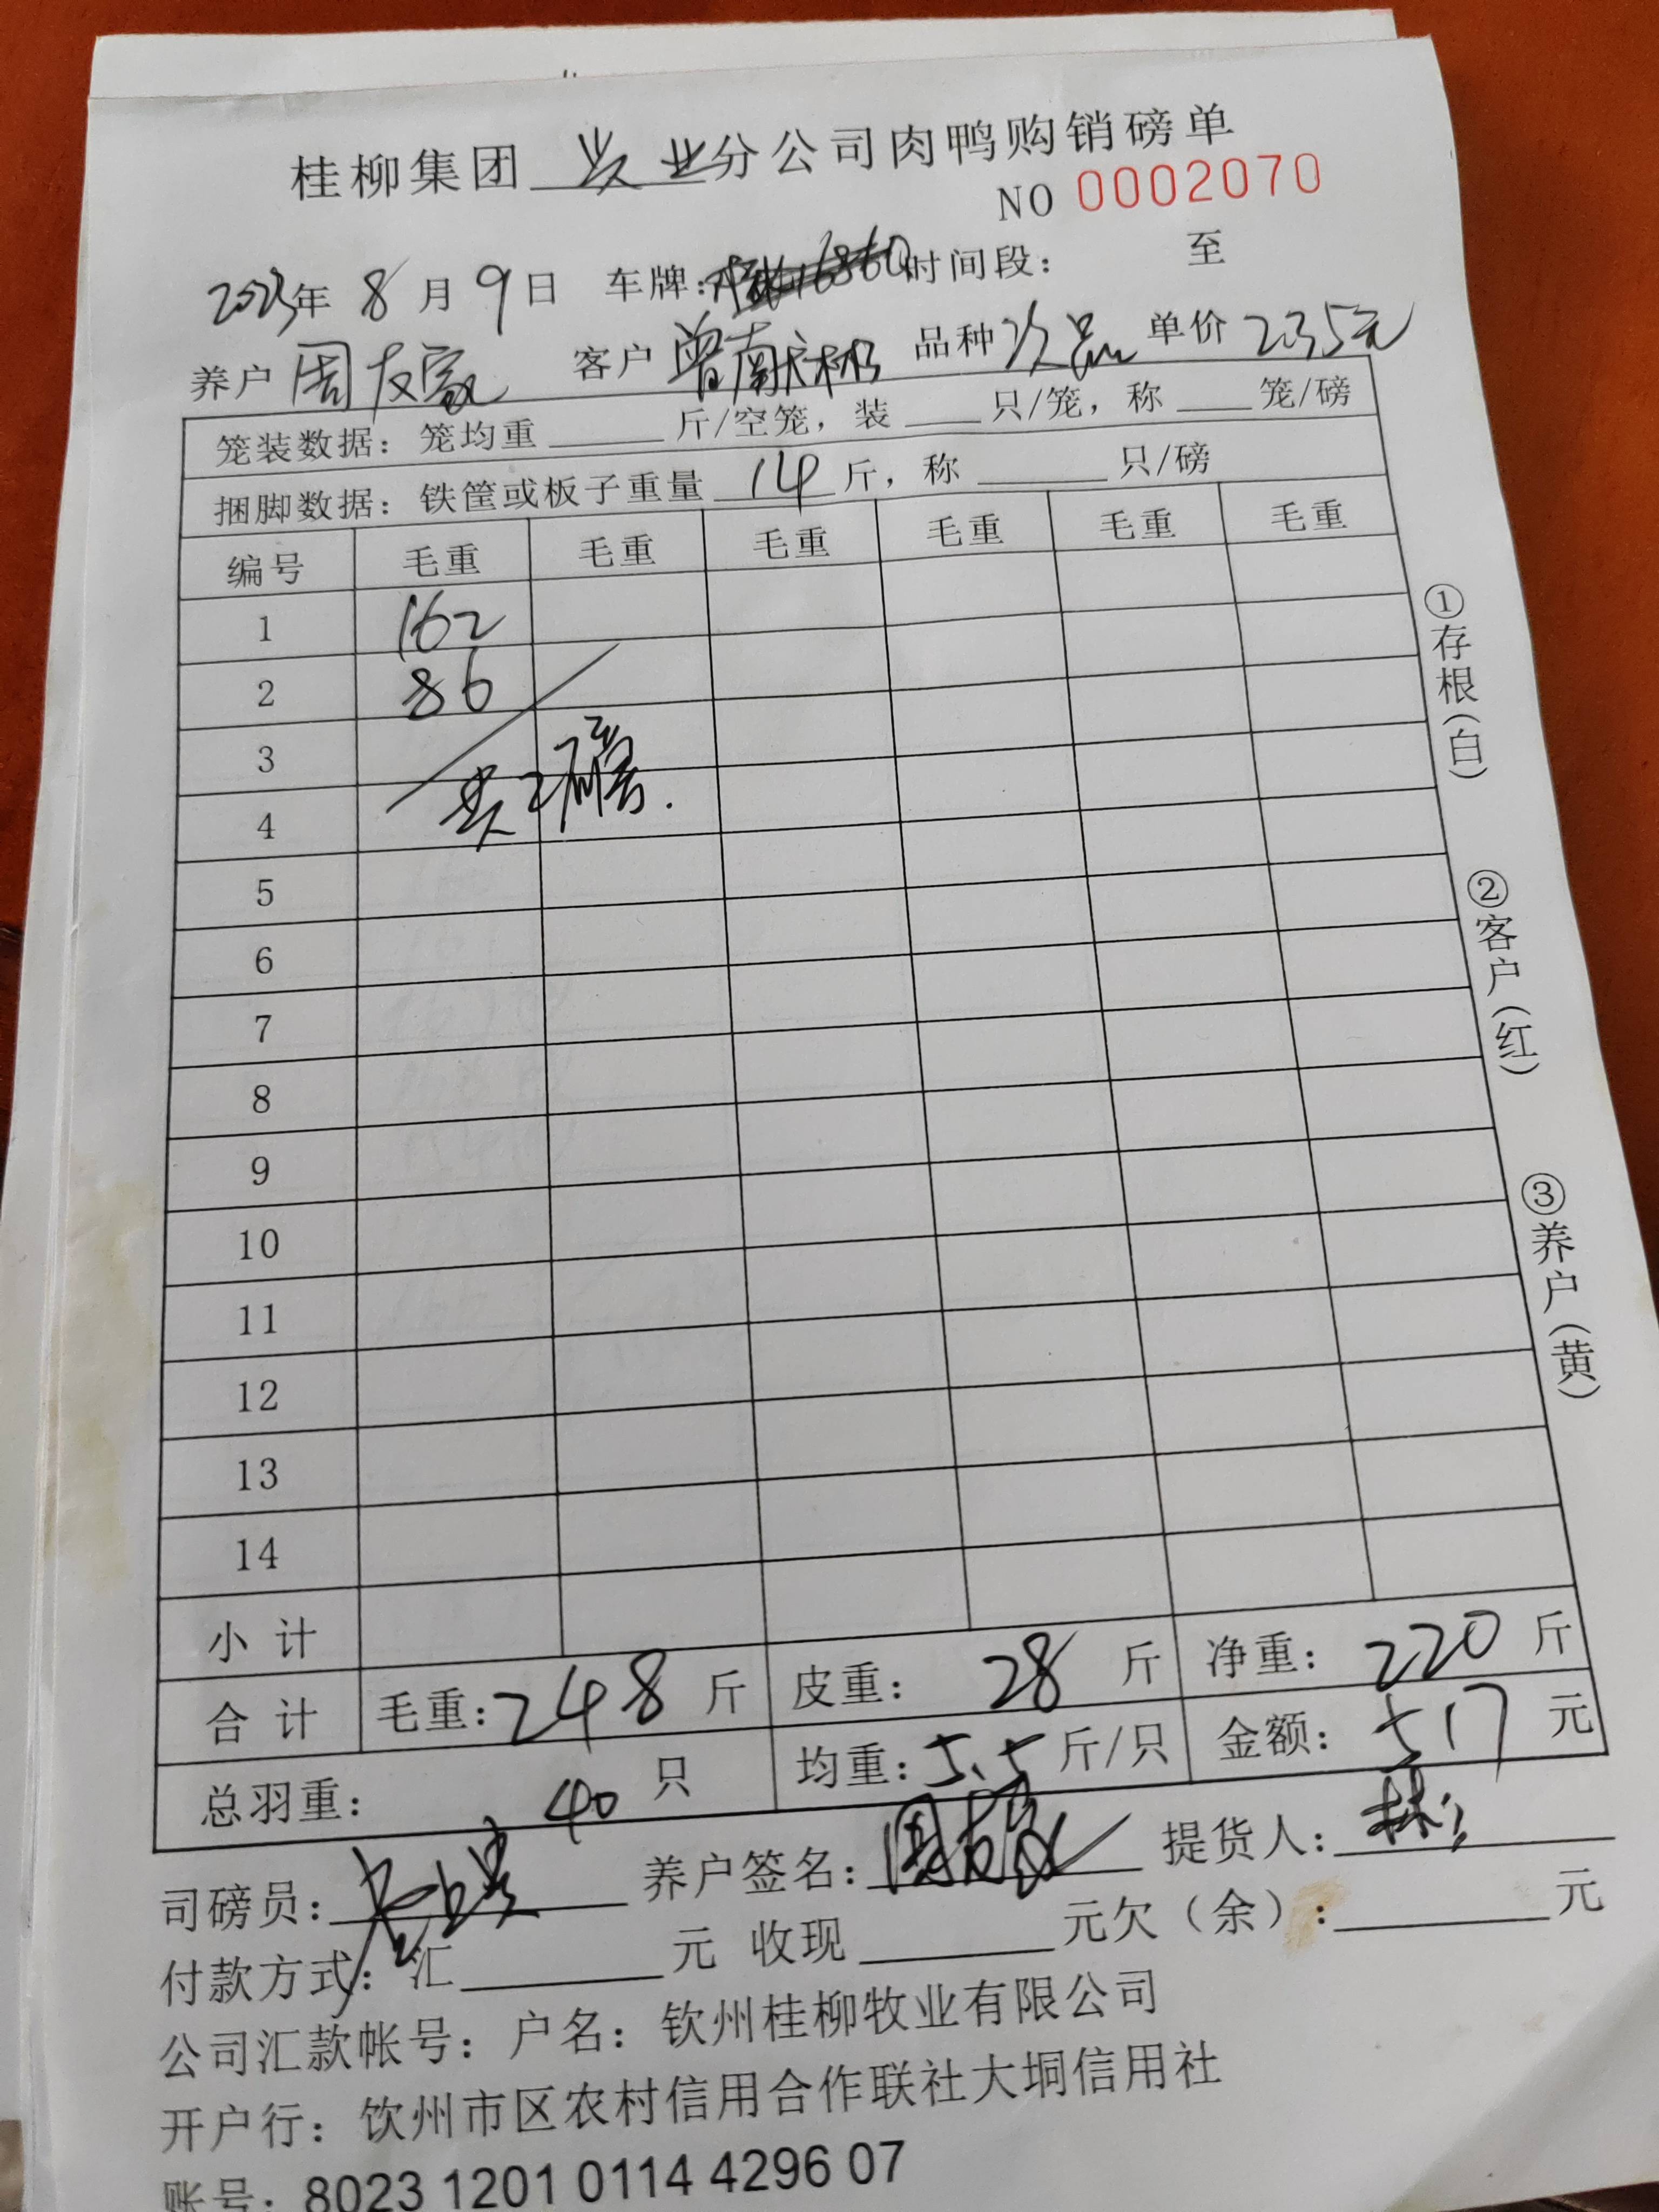 桂柳集团 业分公司肉鸭购销磅单
NO 0002070
2023年 8 月 9 日 车牌: 时间段: 至
养户 周友家 客户 曾南 品种 次品 单价 2.35元
笼装数据: 笼均重 斤/空笼, 装 只/笼, 称 笼/磅
捆脚数据: 铁筐或板子重量 14 斤, 称 只/磅
编号 毛重 毛重 毛重 毛重 毛重 毛重
1 162
2 86
3
4 共2磅.
5
6
7
8
9
10
11
12
13
14
小计
合计 毛重: 248 斤 皮重: 28 斤 净重: 220 斤
总羽重: 40 只 均重: 5.5 斤/只 金额: 517 元
司磅员: 养户签名: 周友家 提货人: 林
付款方式: 汇 元 收现 元欠(余): 元
公司汇款帐号: 户名: 钦州桂柳牧业有限公司
开户行: 钦州市区农村信用合作联社大垌信用社
账号: 8023 1201 0114 4296 07
①存根(白)
②客户(红)
③养户(黄)